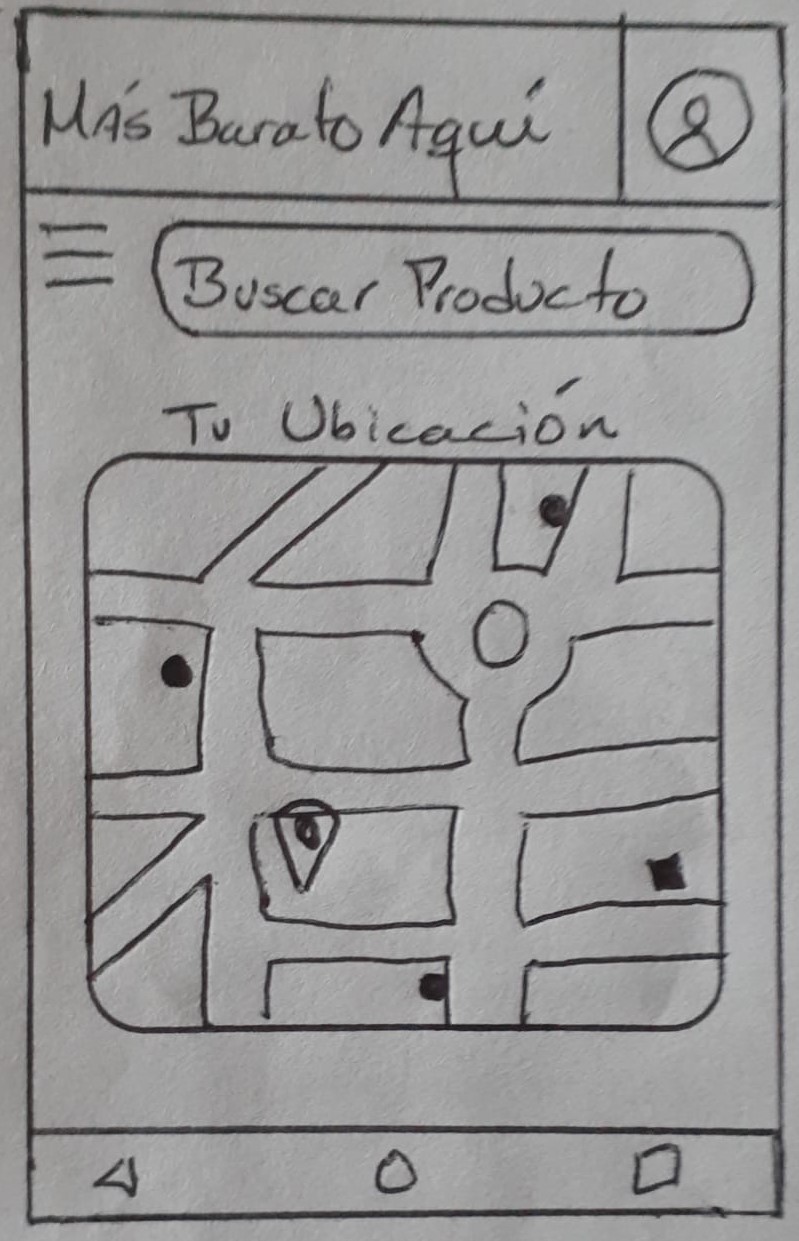 Más Barato Aquí
Buscar Producto
Tu Ubicación